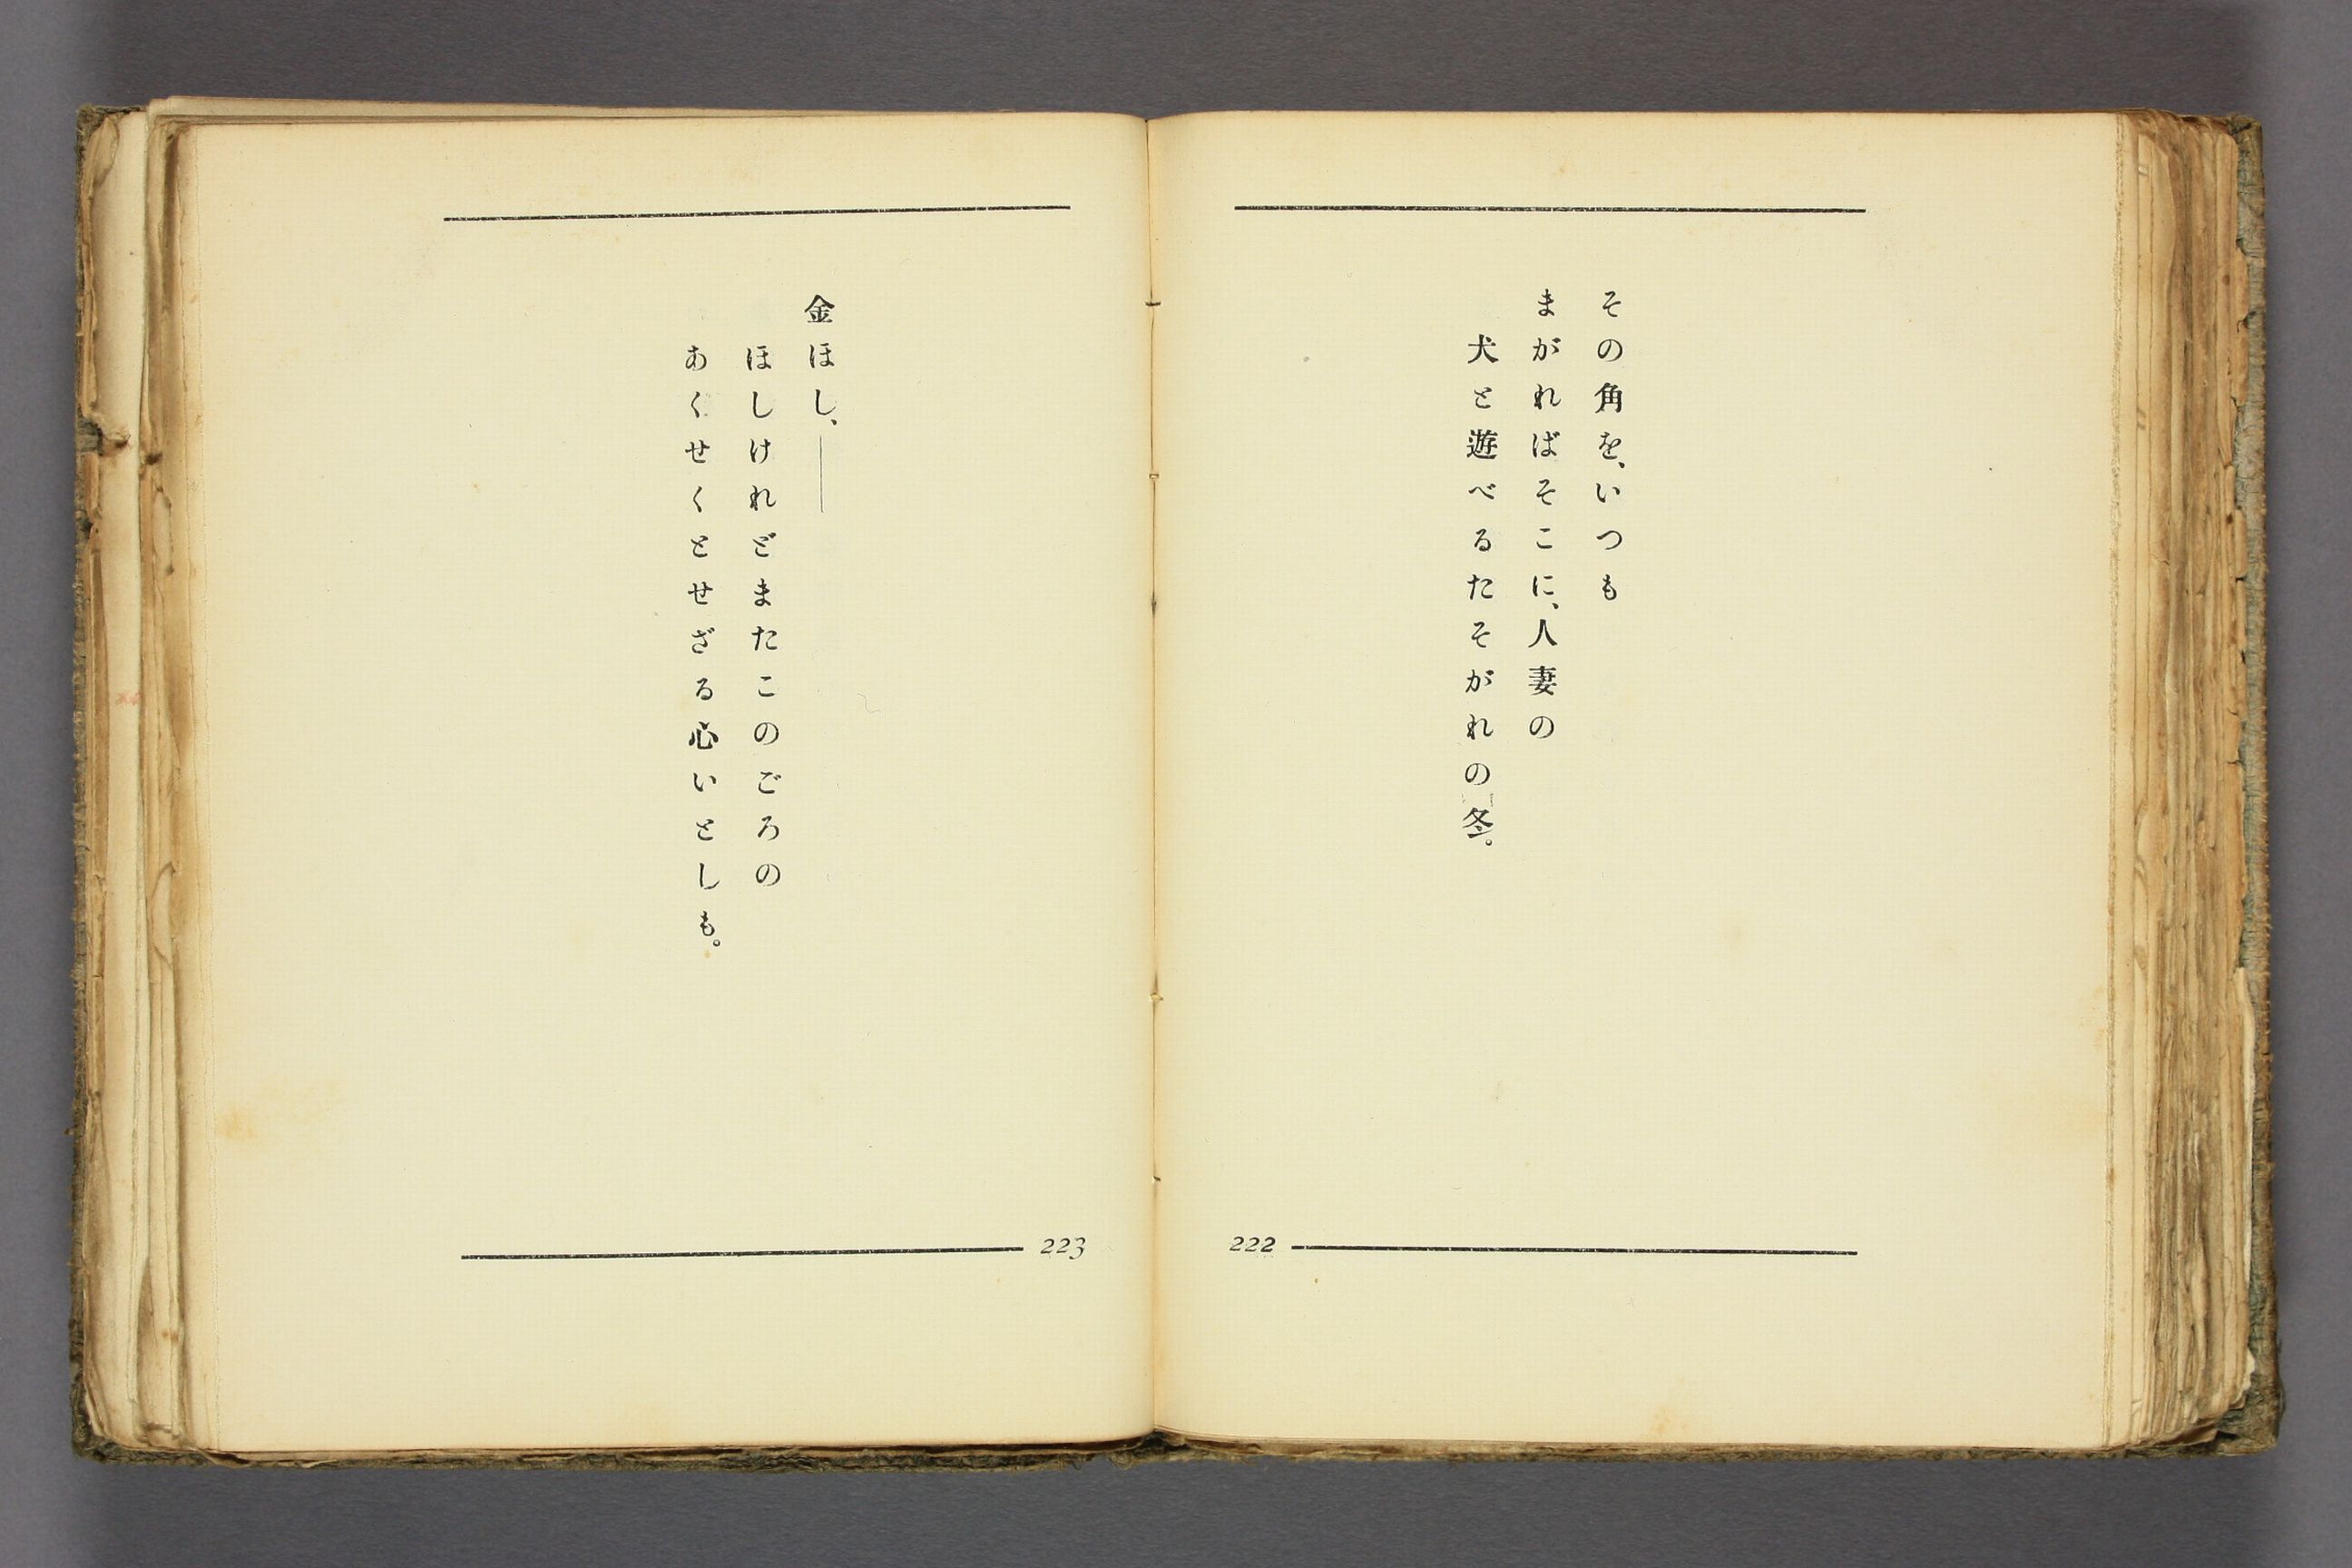 その角を、いつも
まがればそこに、人妻の
犬と遊べるたそがれの冬。
222
金ほし、――
ほしけれどまたこのごろの
あくせくとせざる心いとしも。
223